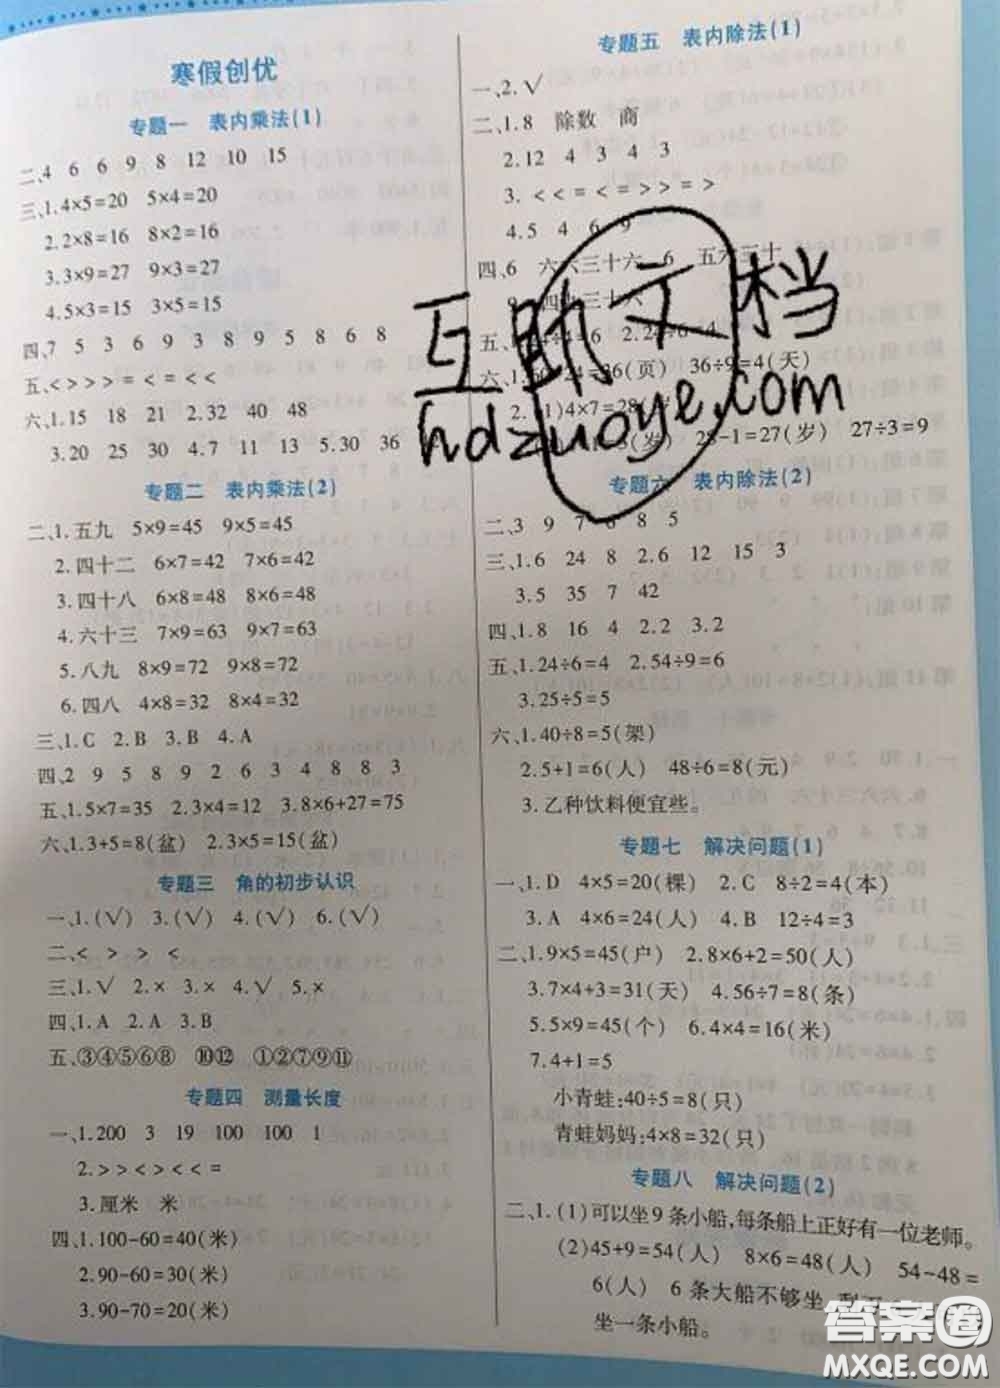 寒假创优
专题一 表内乘法(1)
二、4 6 6 9 8 12 10 15
三、1.4×5=20 5×4=20
2.2×8=16 8×2=16
3.3×9=27 9×3=27
4.5×3=15 3×5=15
四、7 5 3 6 9 3 8 9 5 8 6 8
五、< > > > = < = < <
六、1.15 18 21 2.32 40 48
3.20 25 30 4.7 11 13 5.30 36
专题二 表内乘法(2)
二、1.五九 5×9=45 9×5=45
2.四十二 6×7=42 7×6=42
3.四十八 6×8=48 8×6=48
4.六十三 7×9=63 9×7=63
5.八九 8×9=72 9×8=72
6.四八 4×8=32 8×4=32
三、1.C 2.B 3.B 4.A
四、2 9 5 8 9 2 6 3 4 8 8 3
五、1.5×7=35 2.3×4=12 3.8×6+27=75
六、1.3+5=8(盆) 2.3×5=15(盆)
专题三 角的初步认识
一、1.(√) 3.(√) 4.(√) 6.(√)
二、< > > <
三、1.√ 2.× 3.× 4.√ 5.×
四、1.A 2.A 3.B
五、③④⑤⑥⑧ ⑩⑫ ①②⑦⑨⑪
专题四 测量长度
一、1.200 3 19 100 100 1
2.> > < > < < =
3.厘米 米
四、1.100-60=40(米)
2.90-60=30(米)
3.90-70=20(米)
专题五 表内除法(1)
一、2.√
二、1.8 除数 商
2.12 4 3 4 3
3.< < = < = > > = >
4.5 4 6 9
四、6 六六三十六 6 五六三十
9 四九三十六
五、1.24÷4=6 2.24÷6=4
六、1.60-24=36(页) 36÷9=4(天)
2.(1)4×7=28(岁)
(岁) 28-1=27(岁) 27÷3=9
专题六 表内除法(2)
二、3 9 7 6 8 5
三、1.6 24 8 2.6 12 15 3
3.5 35 7 42
四、1.8 16 4 2.2 3.2
五、1.24÷6=4 2.54÷9=6
3.25÷5=5
六、1.40÷8=5(架)
2.5+1=6(人) 48÷6=8(元)
3.乙种饮料便宜些。
专题七 解决问题(1)
一、1.D 4×5=20(棵) 2.C 8÷2=4(本)
3.A 4×6=24(人) 4.B 12÷4=3
二、1.9×5=45(户) 2.8×6+2=50(人)
3.7×4+3=31(天) 4.56÷7=8(条)
5.5×9=45(个) 6.4×4=16(米)
7.4+1=5
小青蛙:40÷5=8(只)
青蛙妈妈:4×8=32(只)
专题八 解决问题(2)
二、1.(1)可以坐9条小船,每条船上正好有一位老师。
(2)45+9=54(人) 8×6=48(人) 54-48=
6(人) 6条大船不够坐,剩
坐一条小船。
互助文档
hdzuoye.com
答案圈
MXQE.COM